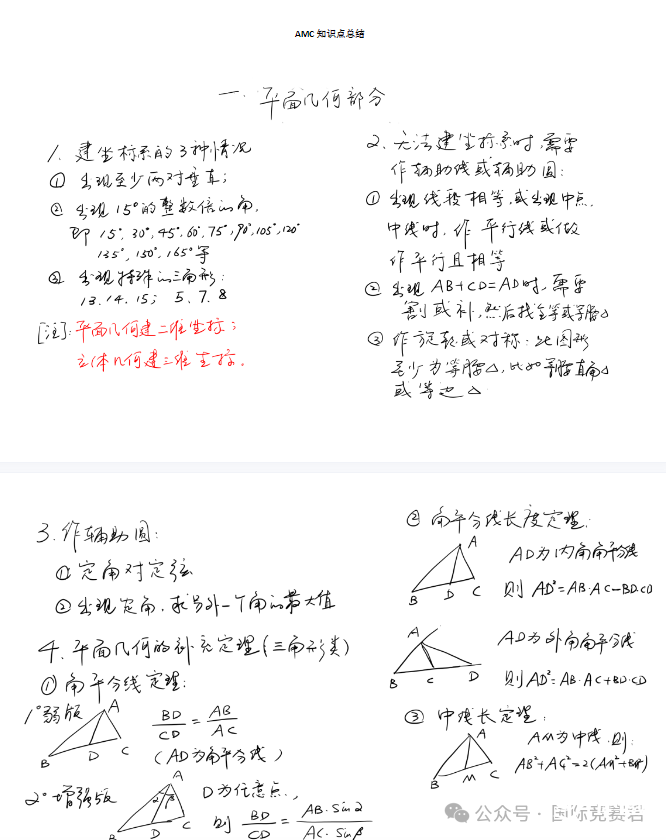 AMC 知识点总结
一. 平面几何部分
1. 建坐标系的3种情况
① 出现至少两对垂直;
② 出现15°的整数倍的角,
即 15°, 30°, 45°, 60°, 75°, 90°, 105°, 120°
135°, 150°, 165° 等
③ 出现特殊的三角形:
13. 14. 15; 5. 7. 8
[注]: 平面几何建二维坐标;
立体几何建三维坐标.
2. 无法建坐标系时, 需要
作辅助线或辅助圆:
① 出现线段相等, 或出现中点,
中线时, 作 平行线或做
作平行且相等
② 出现 AB+CD=AD时, 需要
割或补, 然后找全等或等腰△
③ 作旋转或对称: 此图形
至少为等腰△, 比如等腰直角△
或等边△
3. 作辅助圆:
① 定角对定弦
② 出现定角, 求另外一个角的最大值
4. 平面几何的补充定理(三角形类)
① 角平分线定理:
1° 弱版
A
B
D
C
BD/CD = AB/AC
(AD为角平分线)
2° 增强版
A
α β
B
D
C
D为任意点,
则 BD/CD = AB·sinα/AC·sinβ
② 角平分线长度定理:
A
B
D
C
AD为内角角平分线
则 AD²=AB·AC-BD·CD
A
B
C
D
AD为外角角平分线
则AD²=AB·AC+BD·CD
③ 中线长定理:
A
B
M
C
AM为中线, 则:
AB²+AC²=2(AM²+BM²)
公众号·国际竞赛君